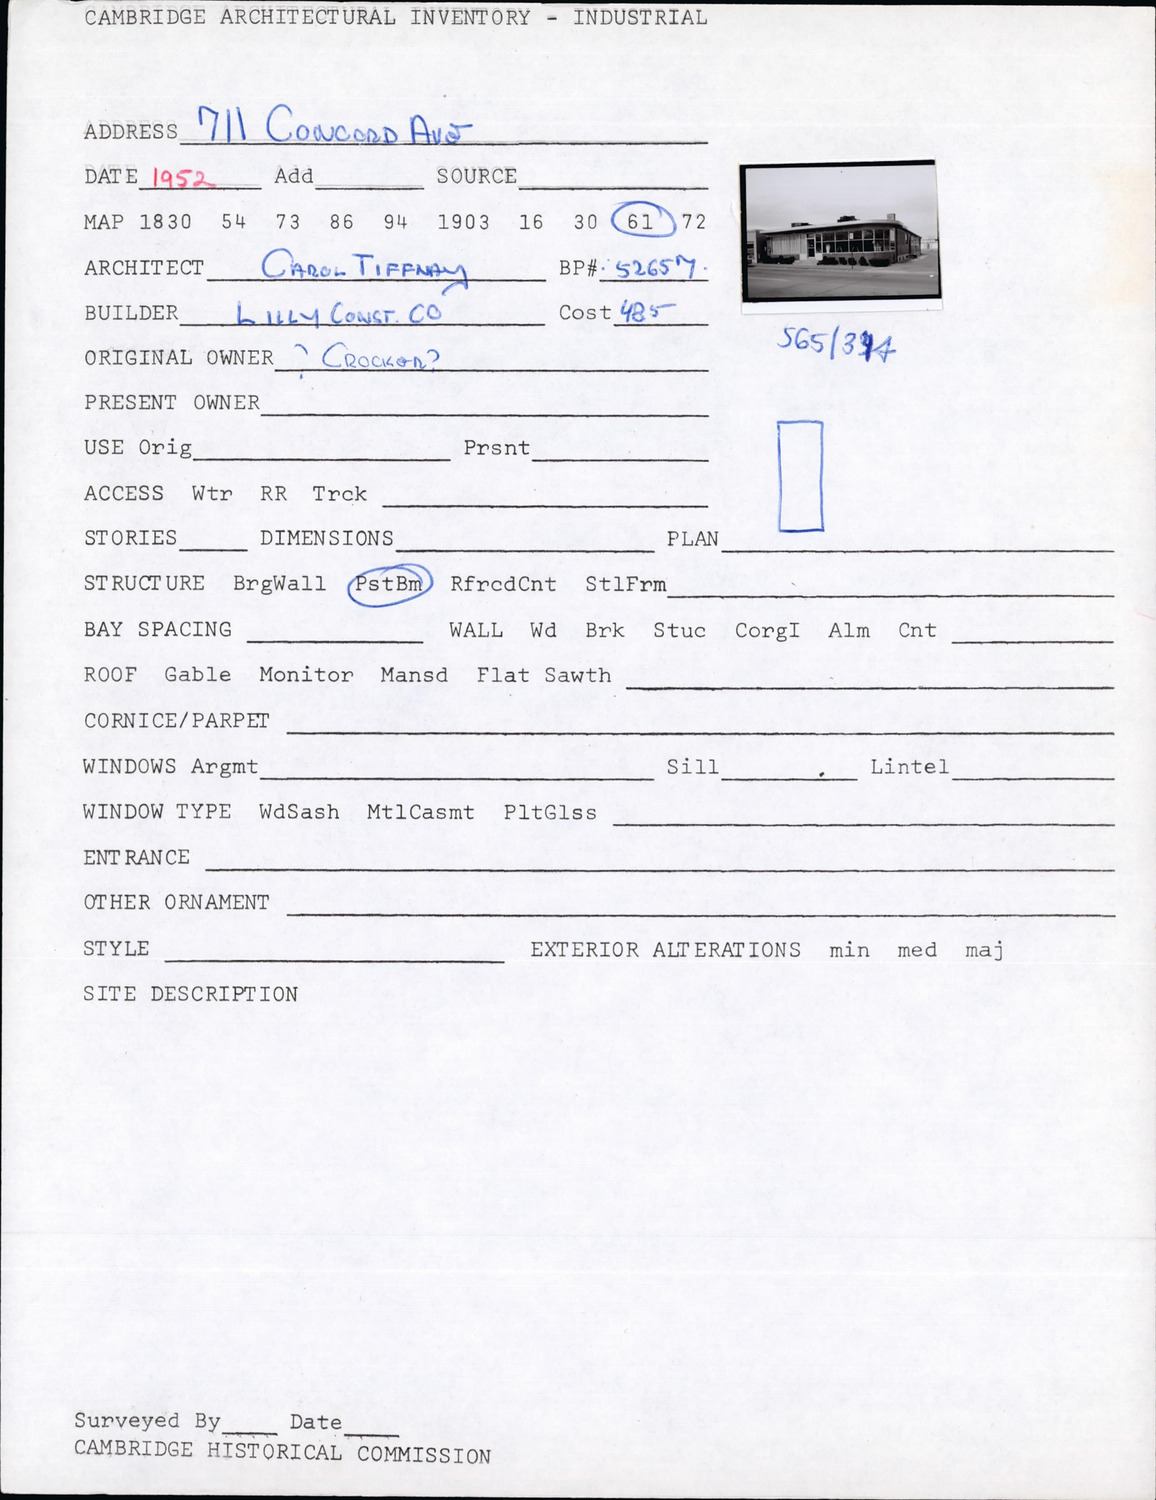 CAMBRIDGE ARCHITECTURAL INVENTORY - INDUSTRIAL
ADDRESS 711 CONCORD AVE
DATE 1952 Add SOURCE
MAP 1830 54 73 86 94 1903 16 30 61 72
ARCHITECT CAROL TIFFNAY BP#
BUILDER LILLY CONST. CO Cost 485
565/394
ORIGINAL OWNER ? CROCKER?
PRESENT OWNER
USE Orig Prsnt
ACCESS Wtr RR Trck
STORIES DIMENSIONS PLAN
STRUCTURE BrgWall PstBm RfrcdCnt StlFrm
BAY SPACING WALL Wd Brk Stuc CorgI Alm Cnt
ROOF Gable Monitor Mansd Flat Sawth
CORNICE/PARPET
WINDOWS Argmt Sill Lintel
WINDOW TYPE WdSash MtlCasmt PltGlss
ENTRANCE
OTHER ORNAMENT
STYLE EXTERIOR ALTERATIONS min med maj
SITE DESCRIPTION
Surveyed By Date
CAMBRIDGE HISTORICAL COMMISSION